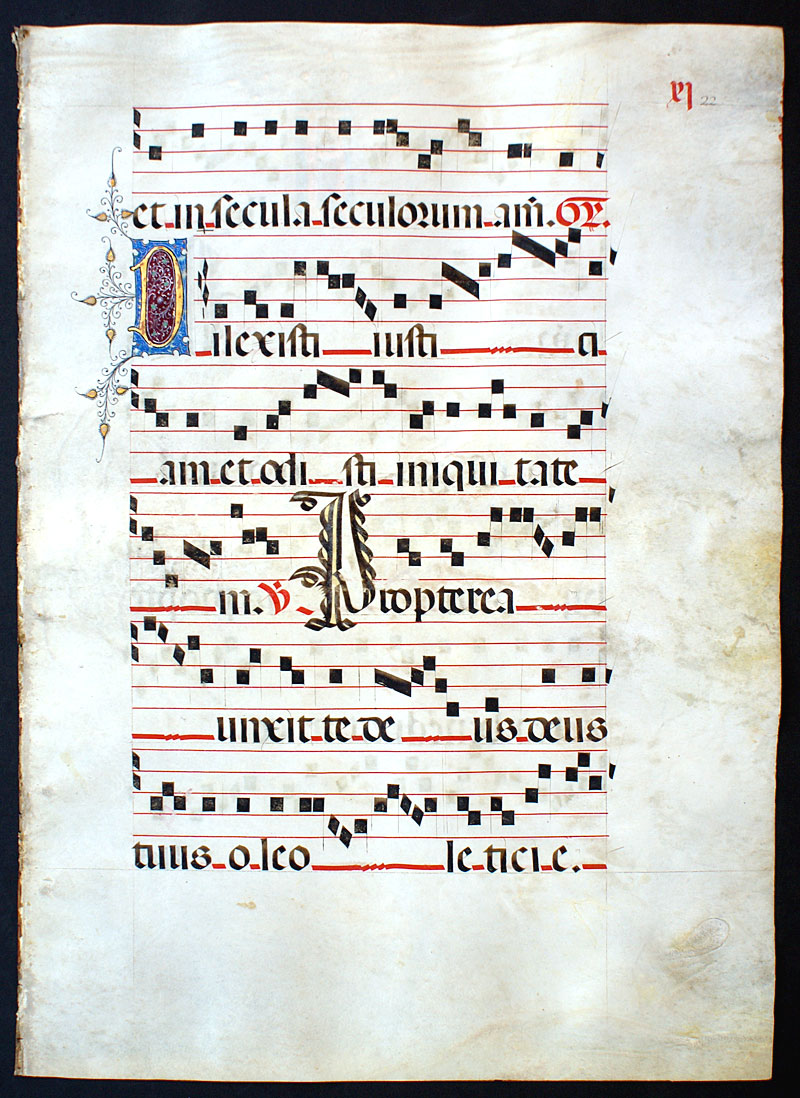 xı 22
et in secula seculorum am̄. Gr̄.
Dilexisti iusti ci
am et odi sti iniqui tate
m. V Propterea
unxit te de us deus
tuus o leo le ticie.